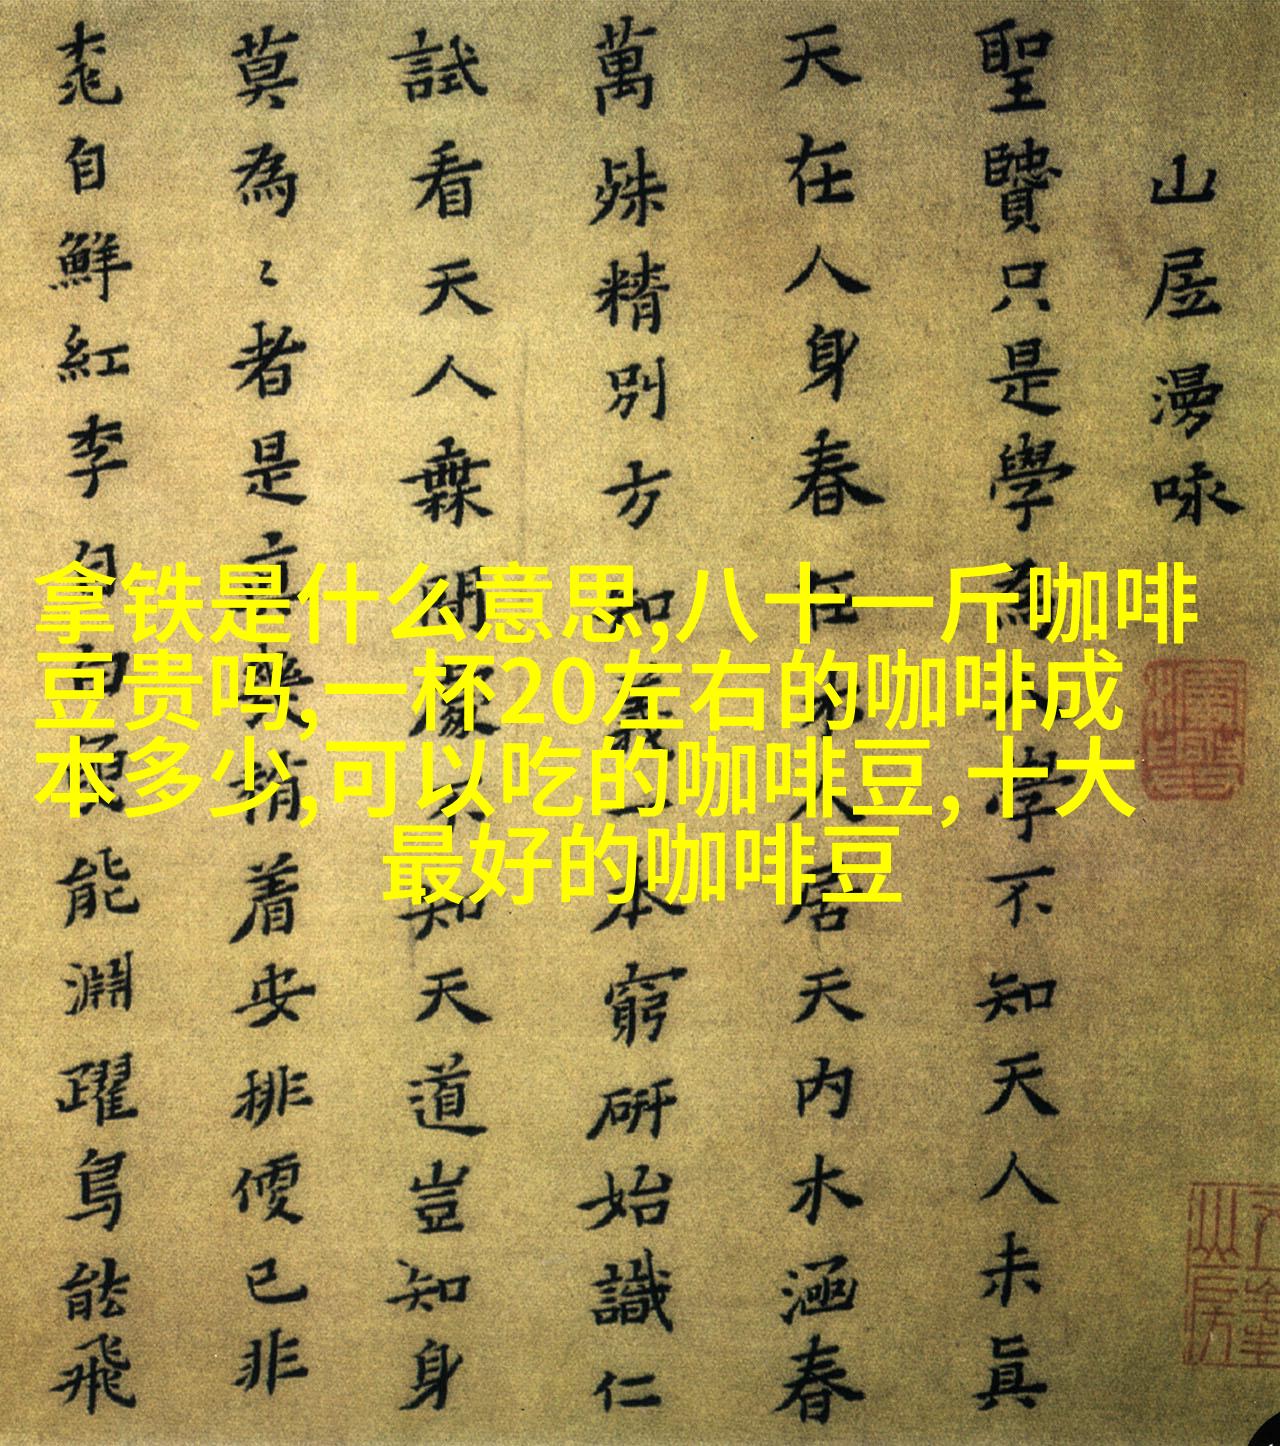 拿铁是什么意思,八十一斤咖啡
豆贵吗,一杯20左右的咖啡成
本多少,可以吃的咖啡豆,十大
最好的咖啡豆
山居漫咏
聖賢只是學為人學不知天人未真
天在人身春在木人居天内木涵春
萬殊精別方知義一本窮研始識仁
試看天人無間處不知天道豈知身
莫為〻者是真樂稍着安排便已非
桃自鮮紅李自白魚能淵躍鳥能飛